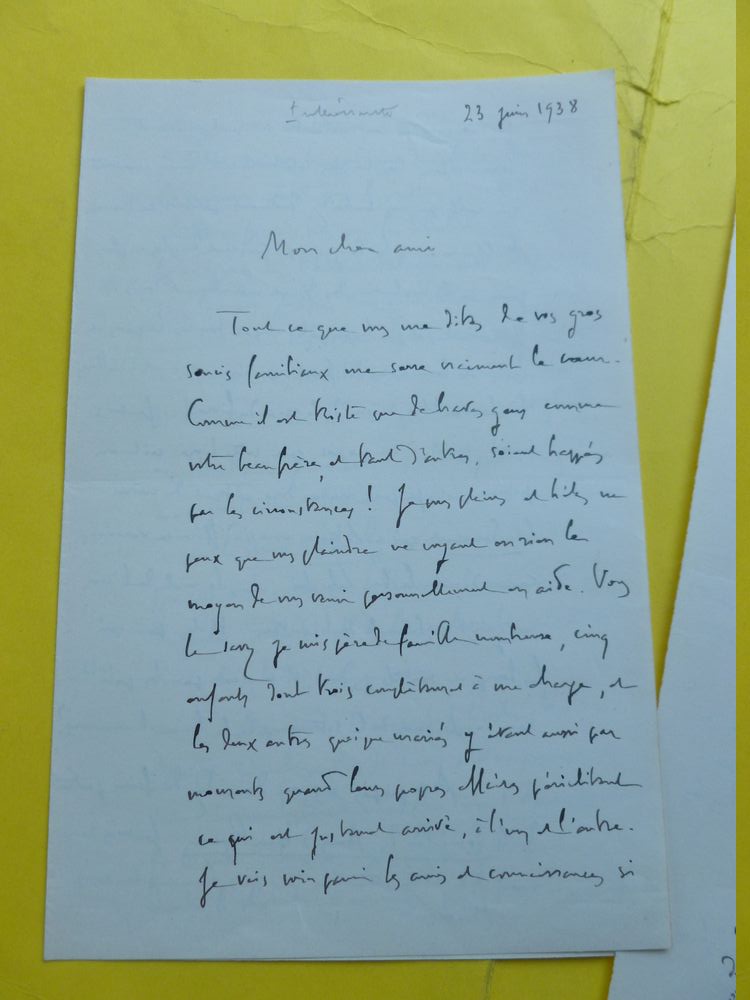 Intéressante
23 juin 1938
Mon cher ami
Tout ce que vous me dites de vos gros
soucis familiaux me serre vraiment le cœur.
Comme il est triste que de braves gens comme
votre beau frère, et tant d'autres, soient happés
par les circonstances ! Je vous plains et hélas ne
peux que vous plaindre ne voyant en rien le
moyen de vous venir personnellement en aide. Vous
le savez je suis père de famille nombreuse, cinq
enfants dont trois complètement à ma charge, et
les deux autres quoique mariés y étant aussi par
moments quand leurs propres affaires périclitent
ce qui est justement arrivé, à l'un et l'autre.
Je vais voir parmi les amis et connaissances si